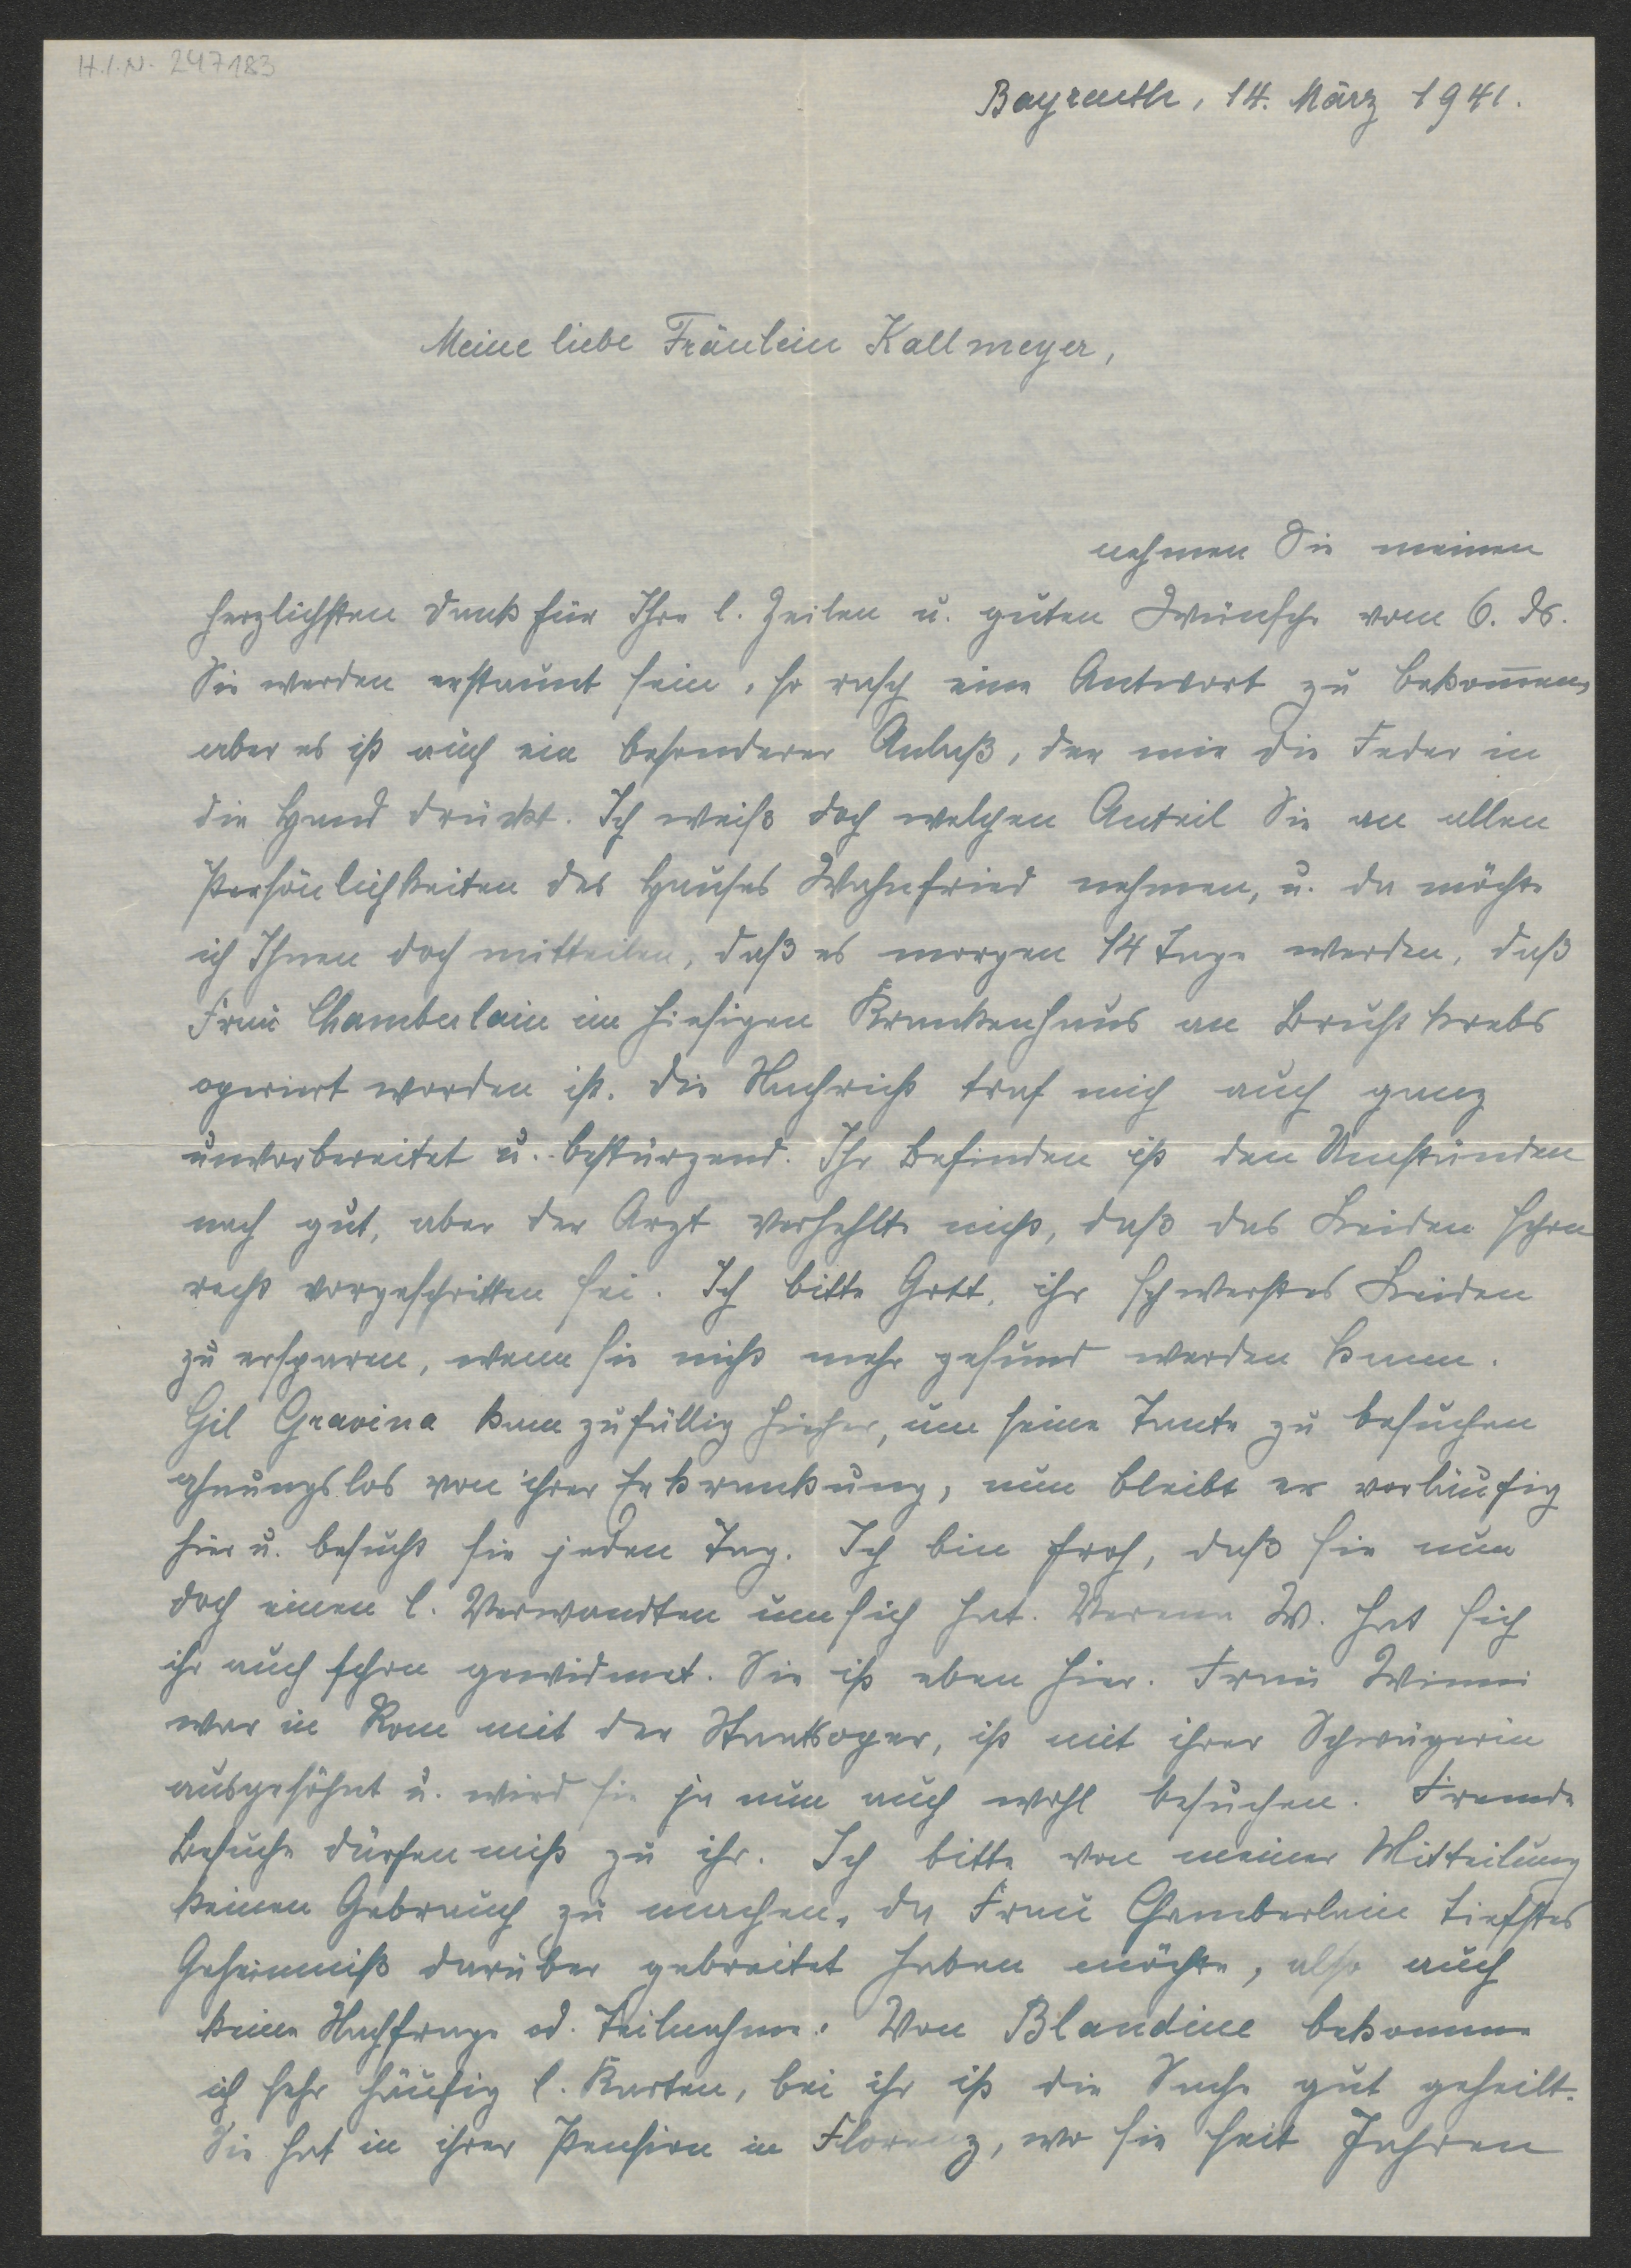 H.I.N. 247183
Bayreuth, 14. März 1941.
Meine liebe Fräulein Kallmeyer,
nehmen Sie meinen
herzlichsten Dank für Ihre l. Zeilen u. guten Wünsche vom 6. ds.
Sie werden erstaunt sein, so rasch eine Antwort zu bekom̅en,
aber es ist auch ein besonderer Anlaß, der mir die Feder in
die Hand drückt. Ich weiß doch welchen Anteil Sie an allen
Persönlichkeiten des Hauses Wahnfried nehmen, u. da möchte
ich Ihnen doch mitteilen, daß es morgen 14 Tage werden, daß
Frau Chamberlain im hiesigen Krankenhaus an Brustkrebs
operiert worden ist. Die Nachricht traf mich auch ganz
unvorbereitet u. bestürzend. Ihr Befinden ist den Umständen
nach gut, aber der Arzt verhehlte nicht, daß das Leiden schon
recht vorgeschritten sei. Ich bitte Gott, ihr schwerstes Leiden
zu ersparen, wenn sie nicht mehr gesund werden kann.
Gil Gravina kam zufällig hieher, um seine Tante zu besuchen
ahnungslos von ihrer Erkrankung, nun bleibt er vorläufig
hier u. besucht sie jeden Tag. Ich bin froh, daß sie nun
doch einen l. Verwandten um sich hat. Verena W. hat sich
ihr auch schon gewidmet. Sie ist eben hier. Frau Winni
war in Rom mit der Staatsoper, ist mit ihrer Schwägerin
ausgesöhnt u. wird sie ja nun auch wohl besuchen. Fremde
Besuche dürfen nicht zu ihr. Ich bitte von meiner Mitteilung
keinen Gebrauch zu machen, da Frau Chamberlain tiefstes
Geheimniß darüber gebreitet haben möchte, also auch
keine Nachfrage od. Teilnahme. Von Blandine bekomme
ich sehr häufig l. Karten, bei ihr ist die Sache gut geheilt.
Sie hat in ihrer Pension in Florenz, wo sie seit Jahren